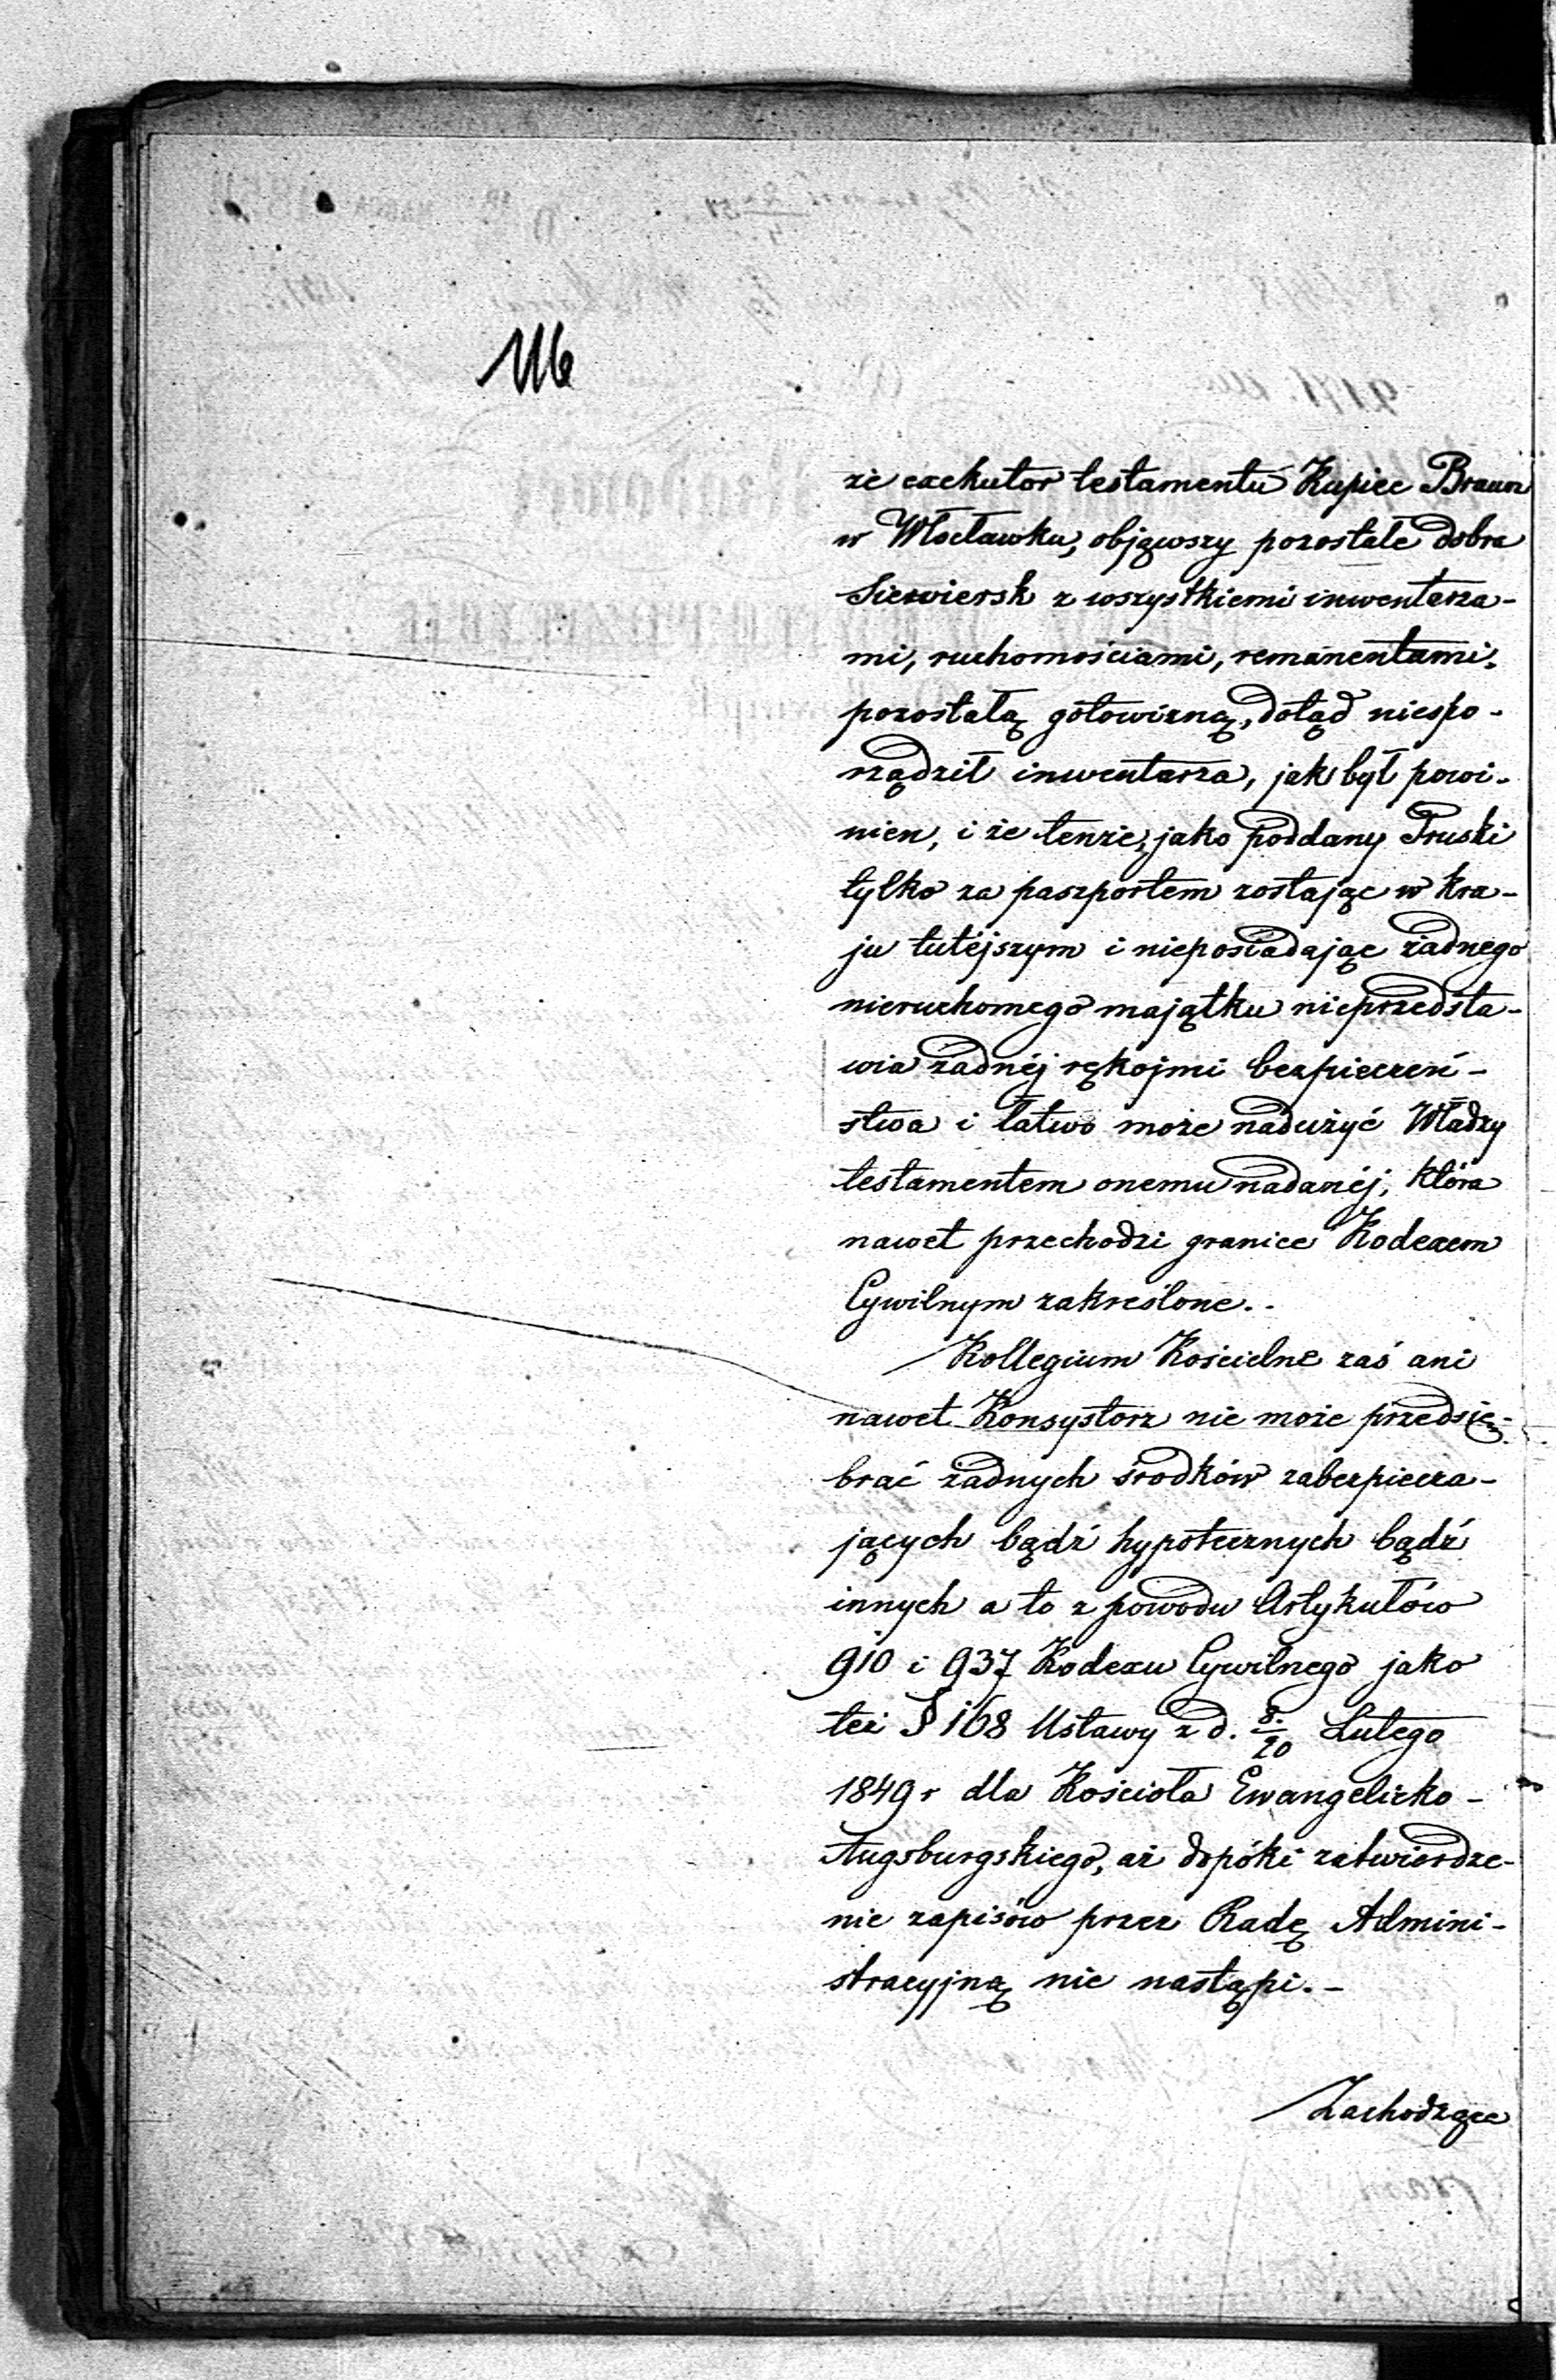 że exekutor testamentu Kupiec Braun
w Włocławku, objąwszy pozostałe dobra
Siewiersk z wszystkiemi inwentarza-
mi, ruchomościami, remanentami,
pozostałą gotowizną, dotąd niespo-
rządził inwentarza, jak był powi-
nien, i że tenże, jako poddany Pruski
tylko za paszportem zostając w kra-
ju tutéjszym i nieposiadając żadnego
nieruchomego majątku nieprzedsta-
wia żadnéj rękojmi bezpieczeń-
stwa i łatwo może nadużyć Władzy
testamentem onemu nadanéj, która
nawet przechodzi granice Kodexem
Cywilnym zakreślone.
Kollegium Kościelne zaś ani
nawet Konsystorz nie może przedsię-
brać żadnych środków zabezpiecza-
jących bądź hypotecznych bądź
innych a to z powodu Artykułów
910 i 937 Kodexu Cywilnego jako
też § 168 Ustawy z d. 8/20 Lutego
1849 r dla Kościoła Ewangelicko-
Augsburgskiego, aż dopóki zatwierdze-
nie zapisów przez Radę Admini-
stracyjną nie nastąpi.-
Zachodzące